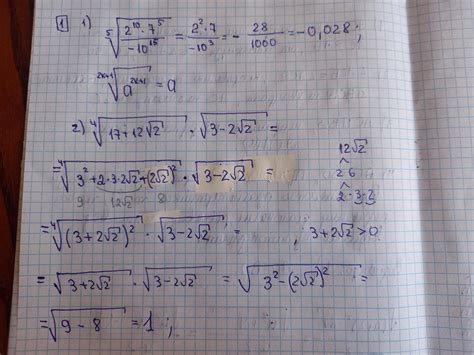 1 1) ⁵√(2¹⁰ · 7⁵ / -10¹⁵) = 2² · 7 / -10³ = - 28/1000 = -0,028 ;
²ᵏ⁺¹√(a²ᵏ⁺¹) = a
2) ⁴√(17+12√2) · √(3-2√2) =
= ⁴√(3² + 2·3·2√2 + (2√2)²) · √(3-2√2) =
9 12√2 8
12√2
2 6
2·3·2
= ⁴√((3+2√2)²) · √(3-2√2) = , 3+2√2 > 0
= √(3+2√2) · √(3-2√2) = √(3² - (2√2)²) =
= √(9-8) = 1 ;